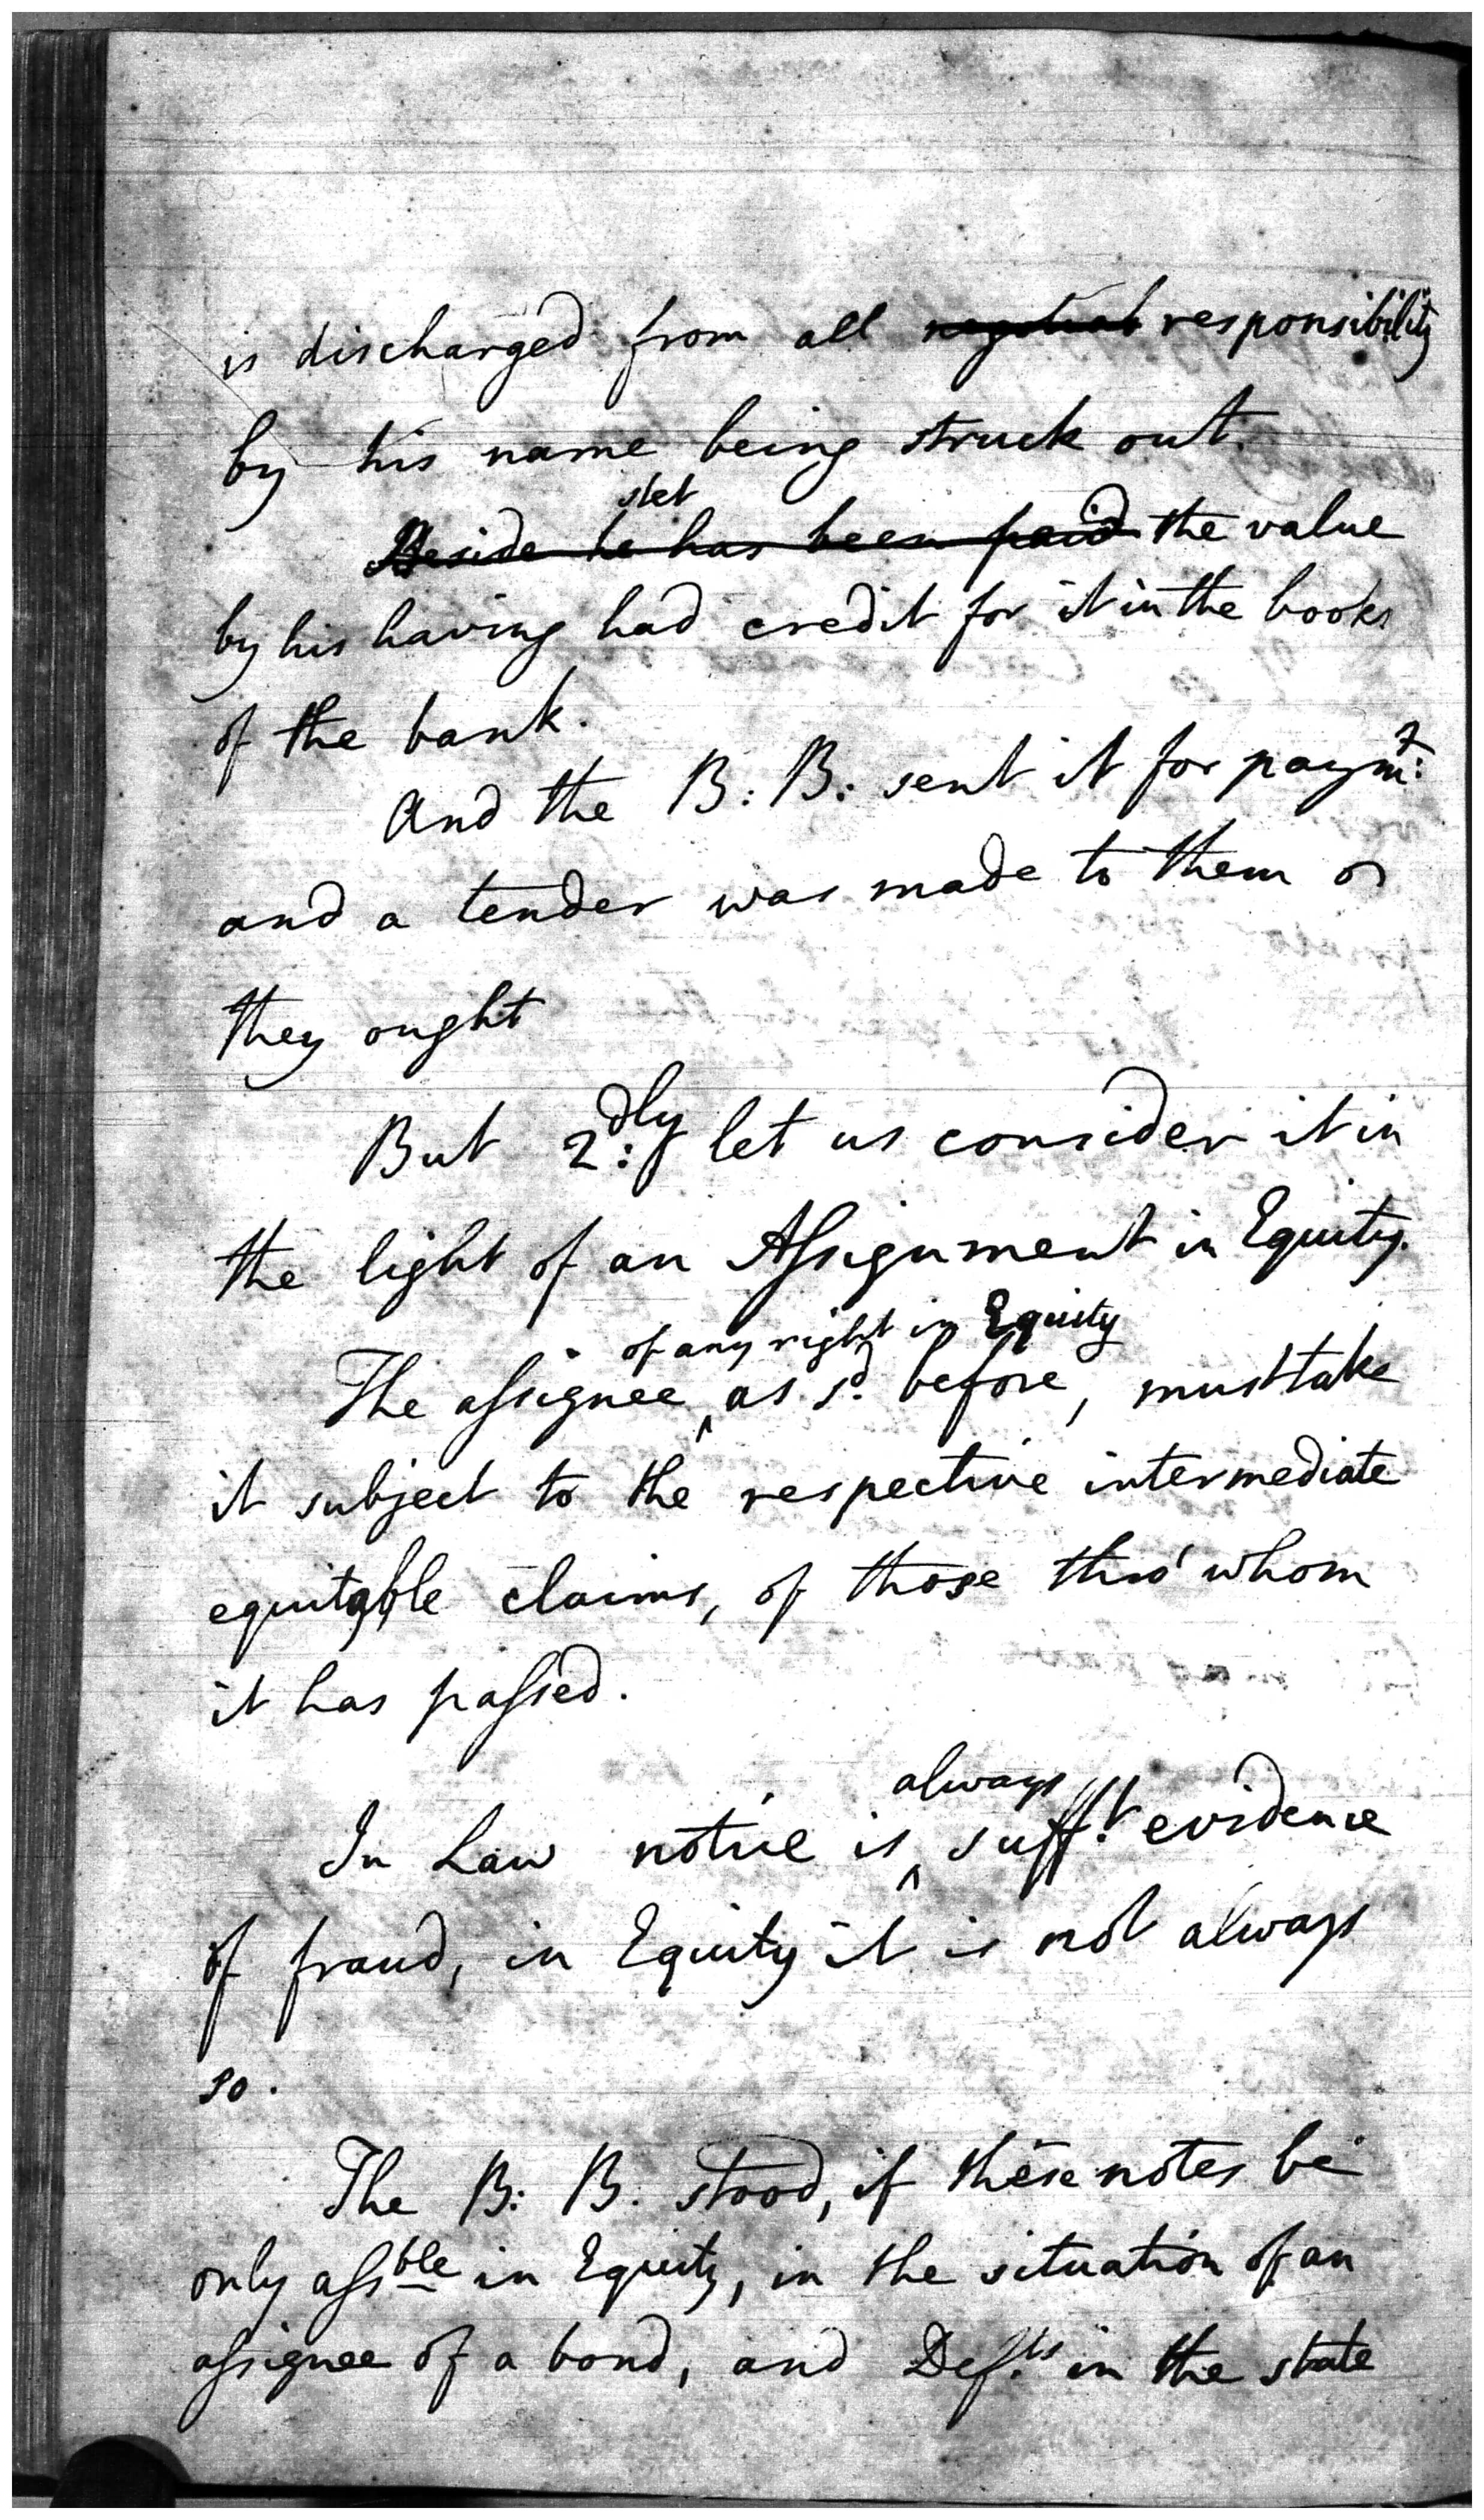 is discharged from all responsibility
by his name being struck out.
stet
Beside he has been paid the value
by his having had credit for it in the books
of the bank.
And the B: B: sent it for paymt:
and a tender was made to them or
they ought
But 2:dly let us consider it in
the light of an Assignment in Equity.
of any right in Equity
The assignee ^ as sd. before, must take
it subject to the respective intermediate
equitable claims, of those thro' whom
it has passed.
always
In Law notice is ^ sufft. evidence
of fraud, in Equity it is not always
so.
The B: B. stood, if these notes be
only assble in Equity, in the situation of an
assignee of a bond, and Defts. in the state